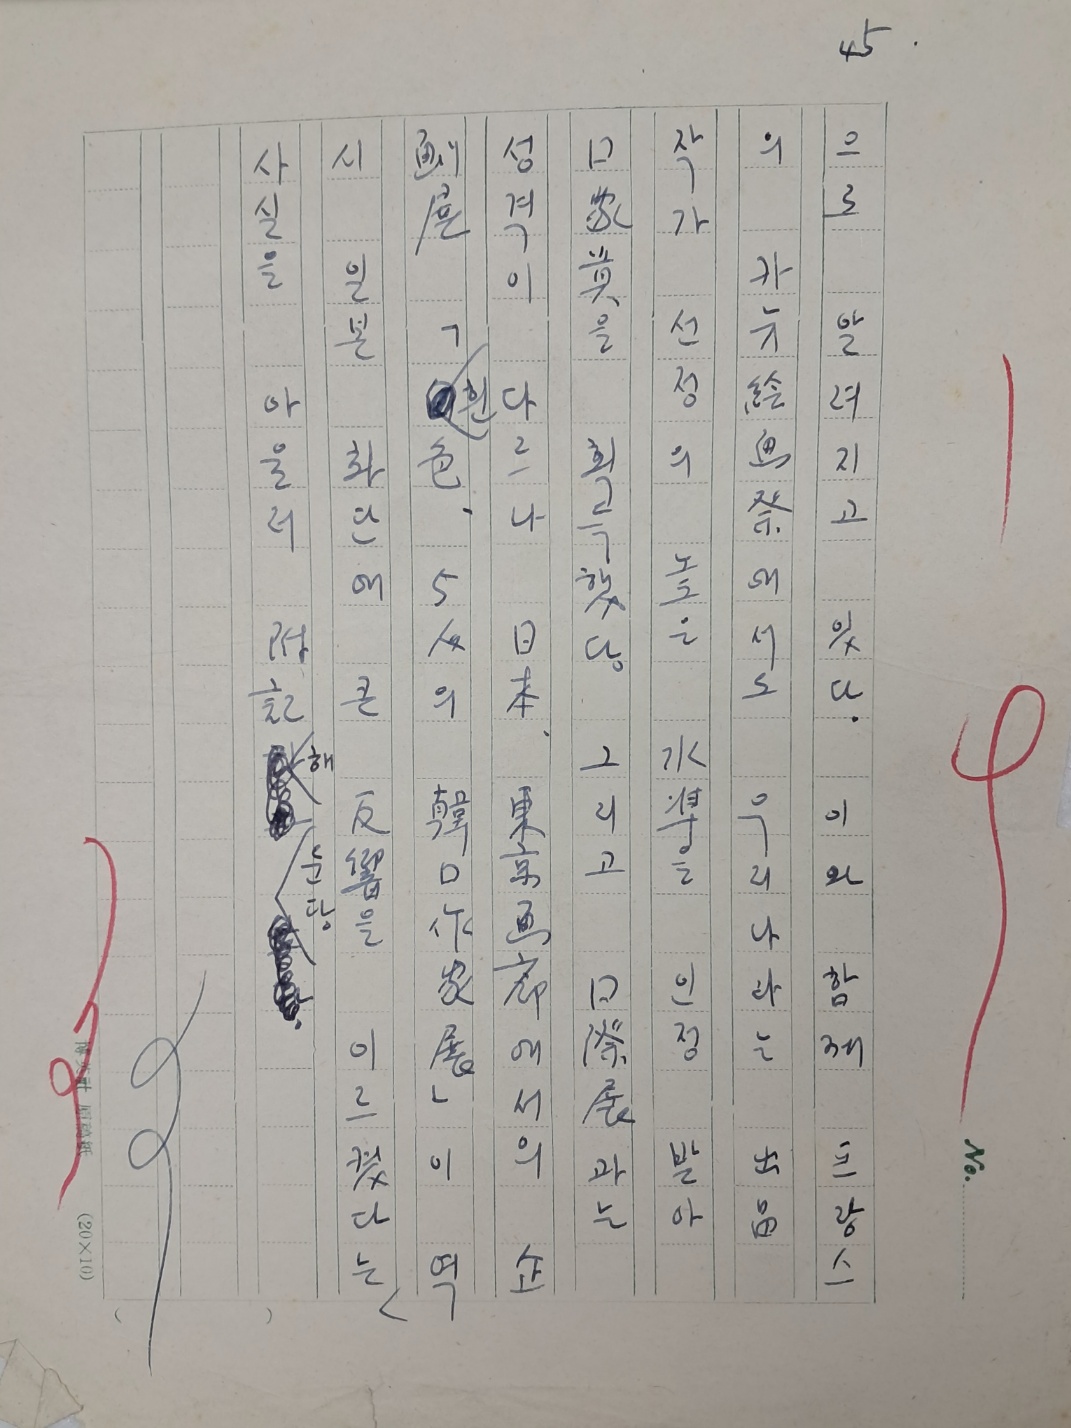 45
으로 알려지고 있다. 이와 함께 프랑스
의 카뉴絵画祭에서도 우리나라는 出品
작가 선정의 높은 水準을 인정 받아
口家賞을 획득했다. 그리고 口際展과는
성격이 다르나 日本、東京画廊에서의 企
劃展 「흰色. 5人의 韓口作家展」이 역
시 일본 화단에 큰 反響을 이르켰다는
사실을 아울러 附記해 둔다.
No.
(20×10)